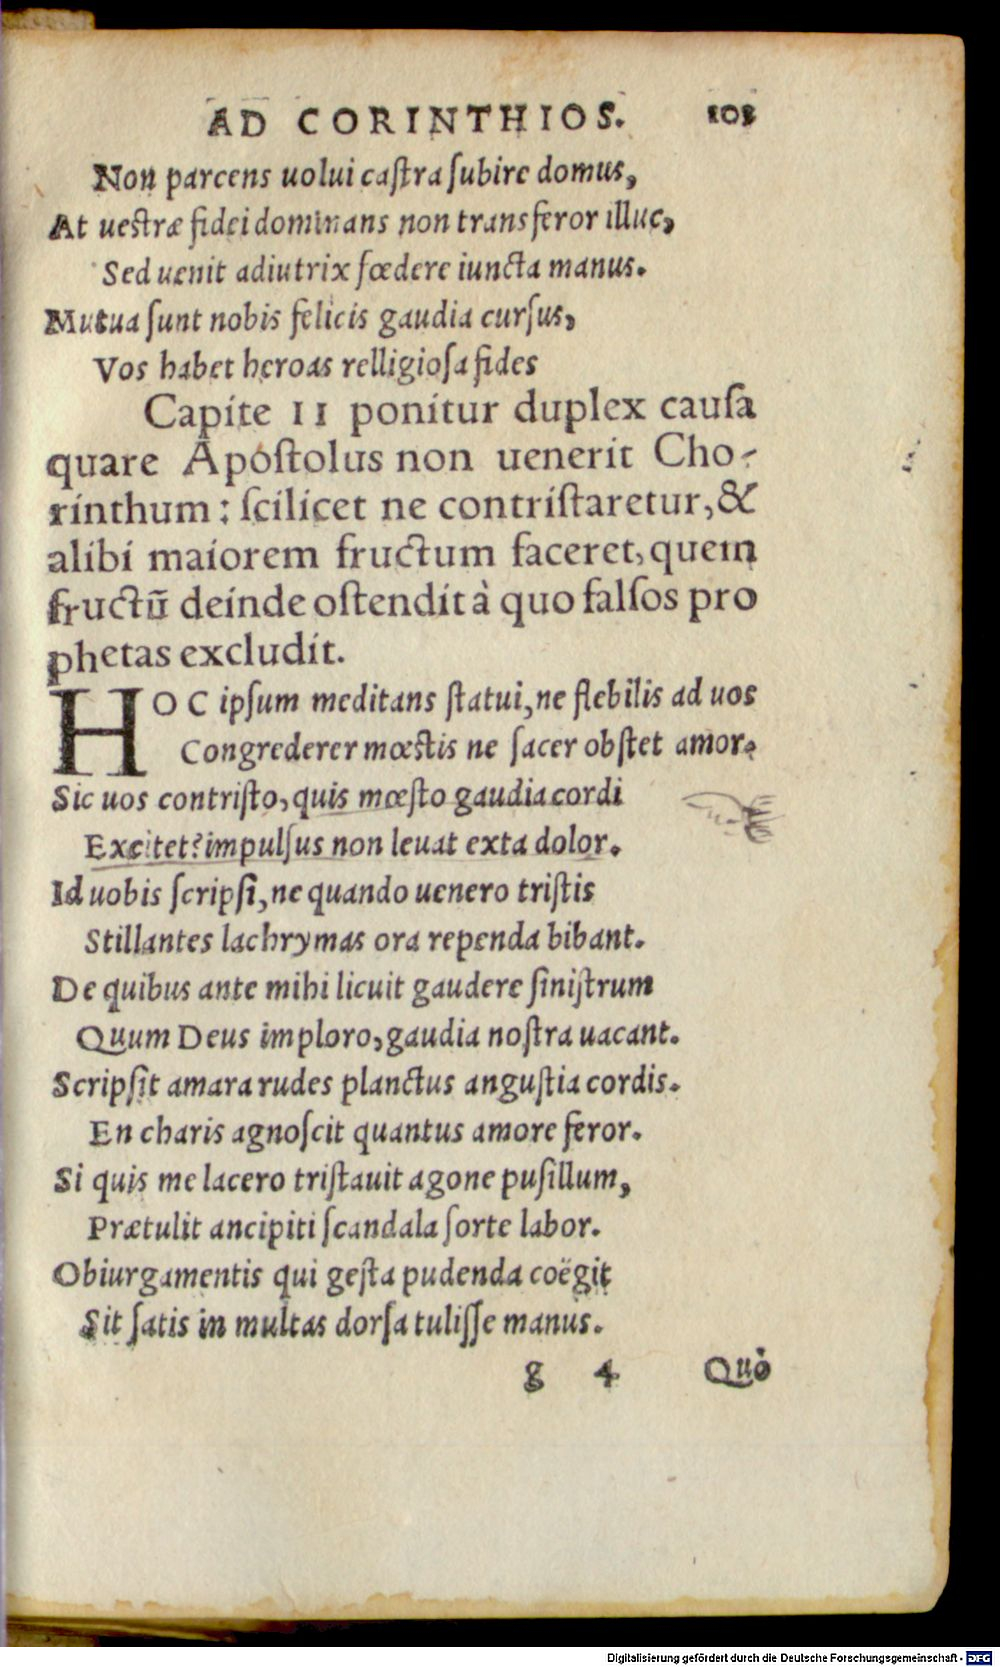 AD CORINTHIOS. 103
Non parcens uolui caſtra ſubire domus,
At ueſtræ fidei dominans non transferor illuc,
Sed uenit adiutrix fœdere iuncta manus.
Mutua ſunt nobis felicis gaudia curſus,
Vos habet heroas relligioſa fides
Capite II ponitur duplex cauſa
quare Apoſtolus non uenerit Cho-
rinthum: ſcilicet ne contriſtaretur, &
alibi maiorem fructum faceret, quem
fructū deinde oſtendit à quo falſos pro
phetas excludit.
HOC ipſum meditans ſtatui, ne flebilis ad uos
Congrederer mœſtis ne ſacer obſtet amor.
Sic uos contriſto, quis mœſto gaudia cordi
Excitet? impulſus non leuat exta dolor.
Id uobis ſcripſi, ne quando uenero triſtis
Stillantes lachrymas ora rependa bibant.
De quibus ante mihi licuit gaudere ſiniſtrum
Quum Deus imploro, gaudia noſtra uacant.
Scripſit amara rudes planctus anguſtia cordis.
En charis agnoſcit quantus amore feror.
Si quis me lacero triſtauit agone puſillum,
Prætulit ancipiti ſcandala ſorte labor.
Obiurgamentis qui geſta pudenda coëgit
Sit ſatis in multas dorſa tuliſſe manus.
g 4 Quò
Digitalisierung gefördert durch die Deutsche Forschungsgemeinschaft - DFG